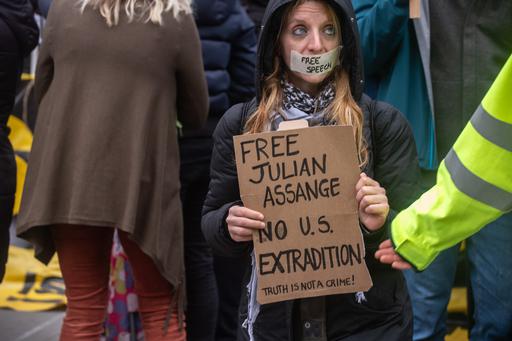 FREE
SPEECH
FREE
JULIAN
ASSANGE
NO U.S.
EXTRADITION
TRUTH IS NOT A CRIME!